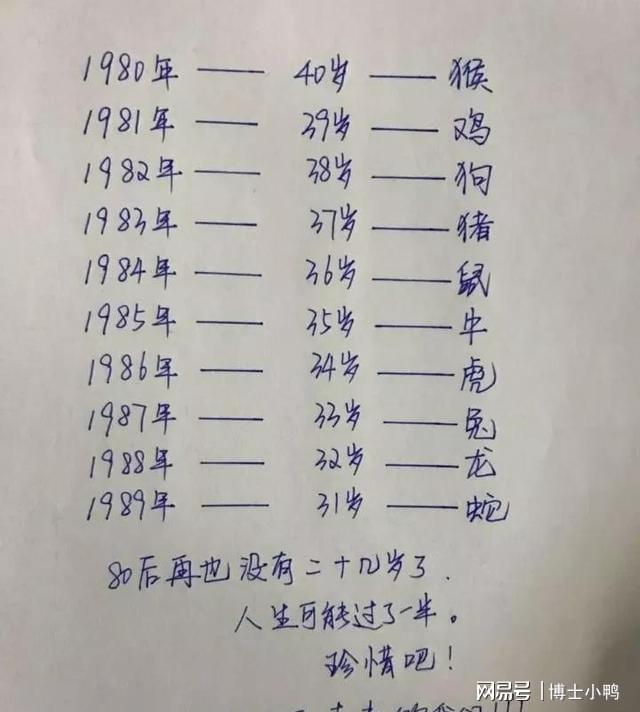 1980年 —— 40岁 —— 猴
1981年 —— 39岁 —— 鸡
1982年 —— 38岁 —— 狗
1983年 —— 37岁 —— 猪
1984年 —— 36岁 —— 鼠
1985年 —— 35岁 —— 牛
1986年 —— 34岁 —— 虎
1987年 —— 33岁 —— 兔
1988年 —— 32岁 —— 龙
1989年 —— 31岁 —— 蛇
80后再也没有二十几岁了.
人生可能过了一半。
珍惜吧!
网易号 | 博士小鸭